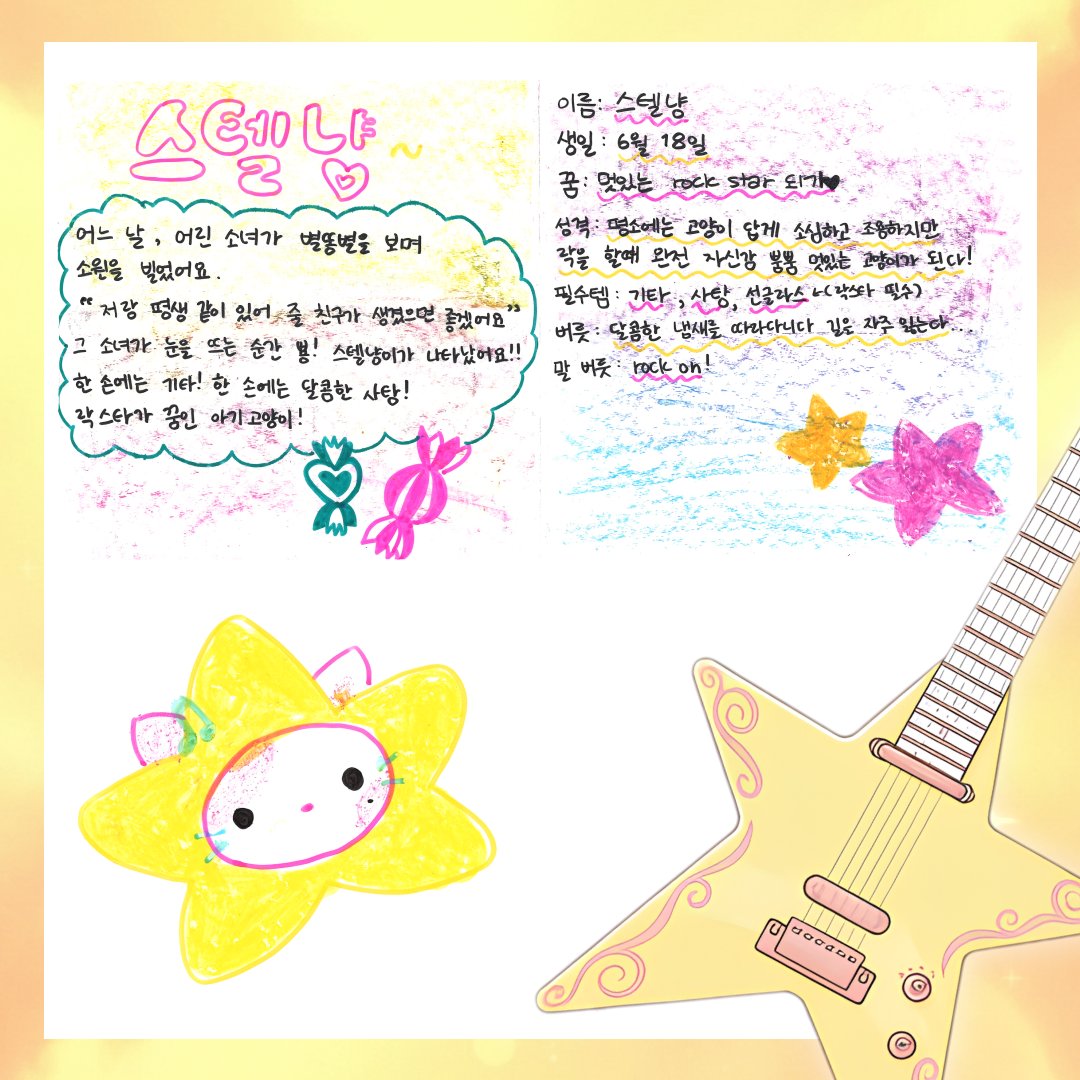 스텔냥~
어느 날, 어린 소녀가 별똥별을 보며
소원을 빌었어요.
"저랑 평생 같이 있어 줄 친구가 생겼으면 좋겠어요"
그 소녀가 눈을 뜨는 순간 뿅! 스텔냥이가 나타났어요!!
한 손에는 기타! 한 손에는 달콤한 사탕!
락스타가 꿈인 아기고양이!
이름: 스텔냥
생일: 6월 18일
꿈: 멋있는 rock star 되기♥
성격: 평소에는 고양이 답게 소심하고 조용하지만
락을 할때 완전 자신감 뿜뿜 멋있는 고양이가 된다!
필수템: 기타, 사탕, 선글라스 (락스타 필수)
버릇: 달콤한 냄새를 따라다니다 길은 자주 잃는다...
말 버릇: rock on!